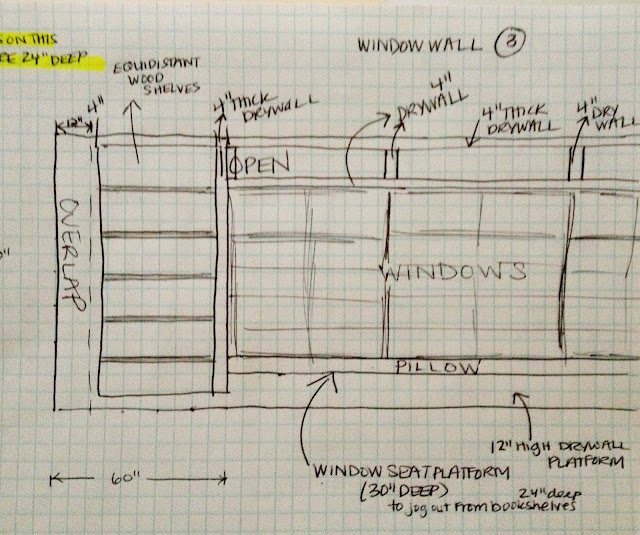 S ON THIS
EE 24" DEEP
WINDOW WALL ③
EQUIDISTANT
WOOD
SHELVES
12"
4"
4" THICK
DRYWALL
4"
DRYWALL
4" THICK
DRYWALL
4" DRY
WALL
OPEN
OVERLAP
0"
WINDOWS
PILLOW
60"
WINDOW SEAT PLATFORM
(30" DEEP)
24" deep
to jog out from bookshelves
12" HIGH DRYWALL
PLATFORM